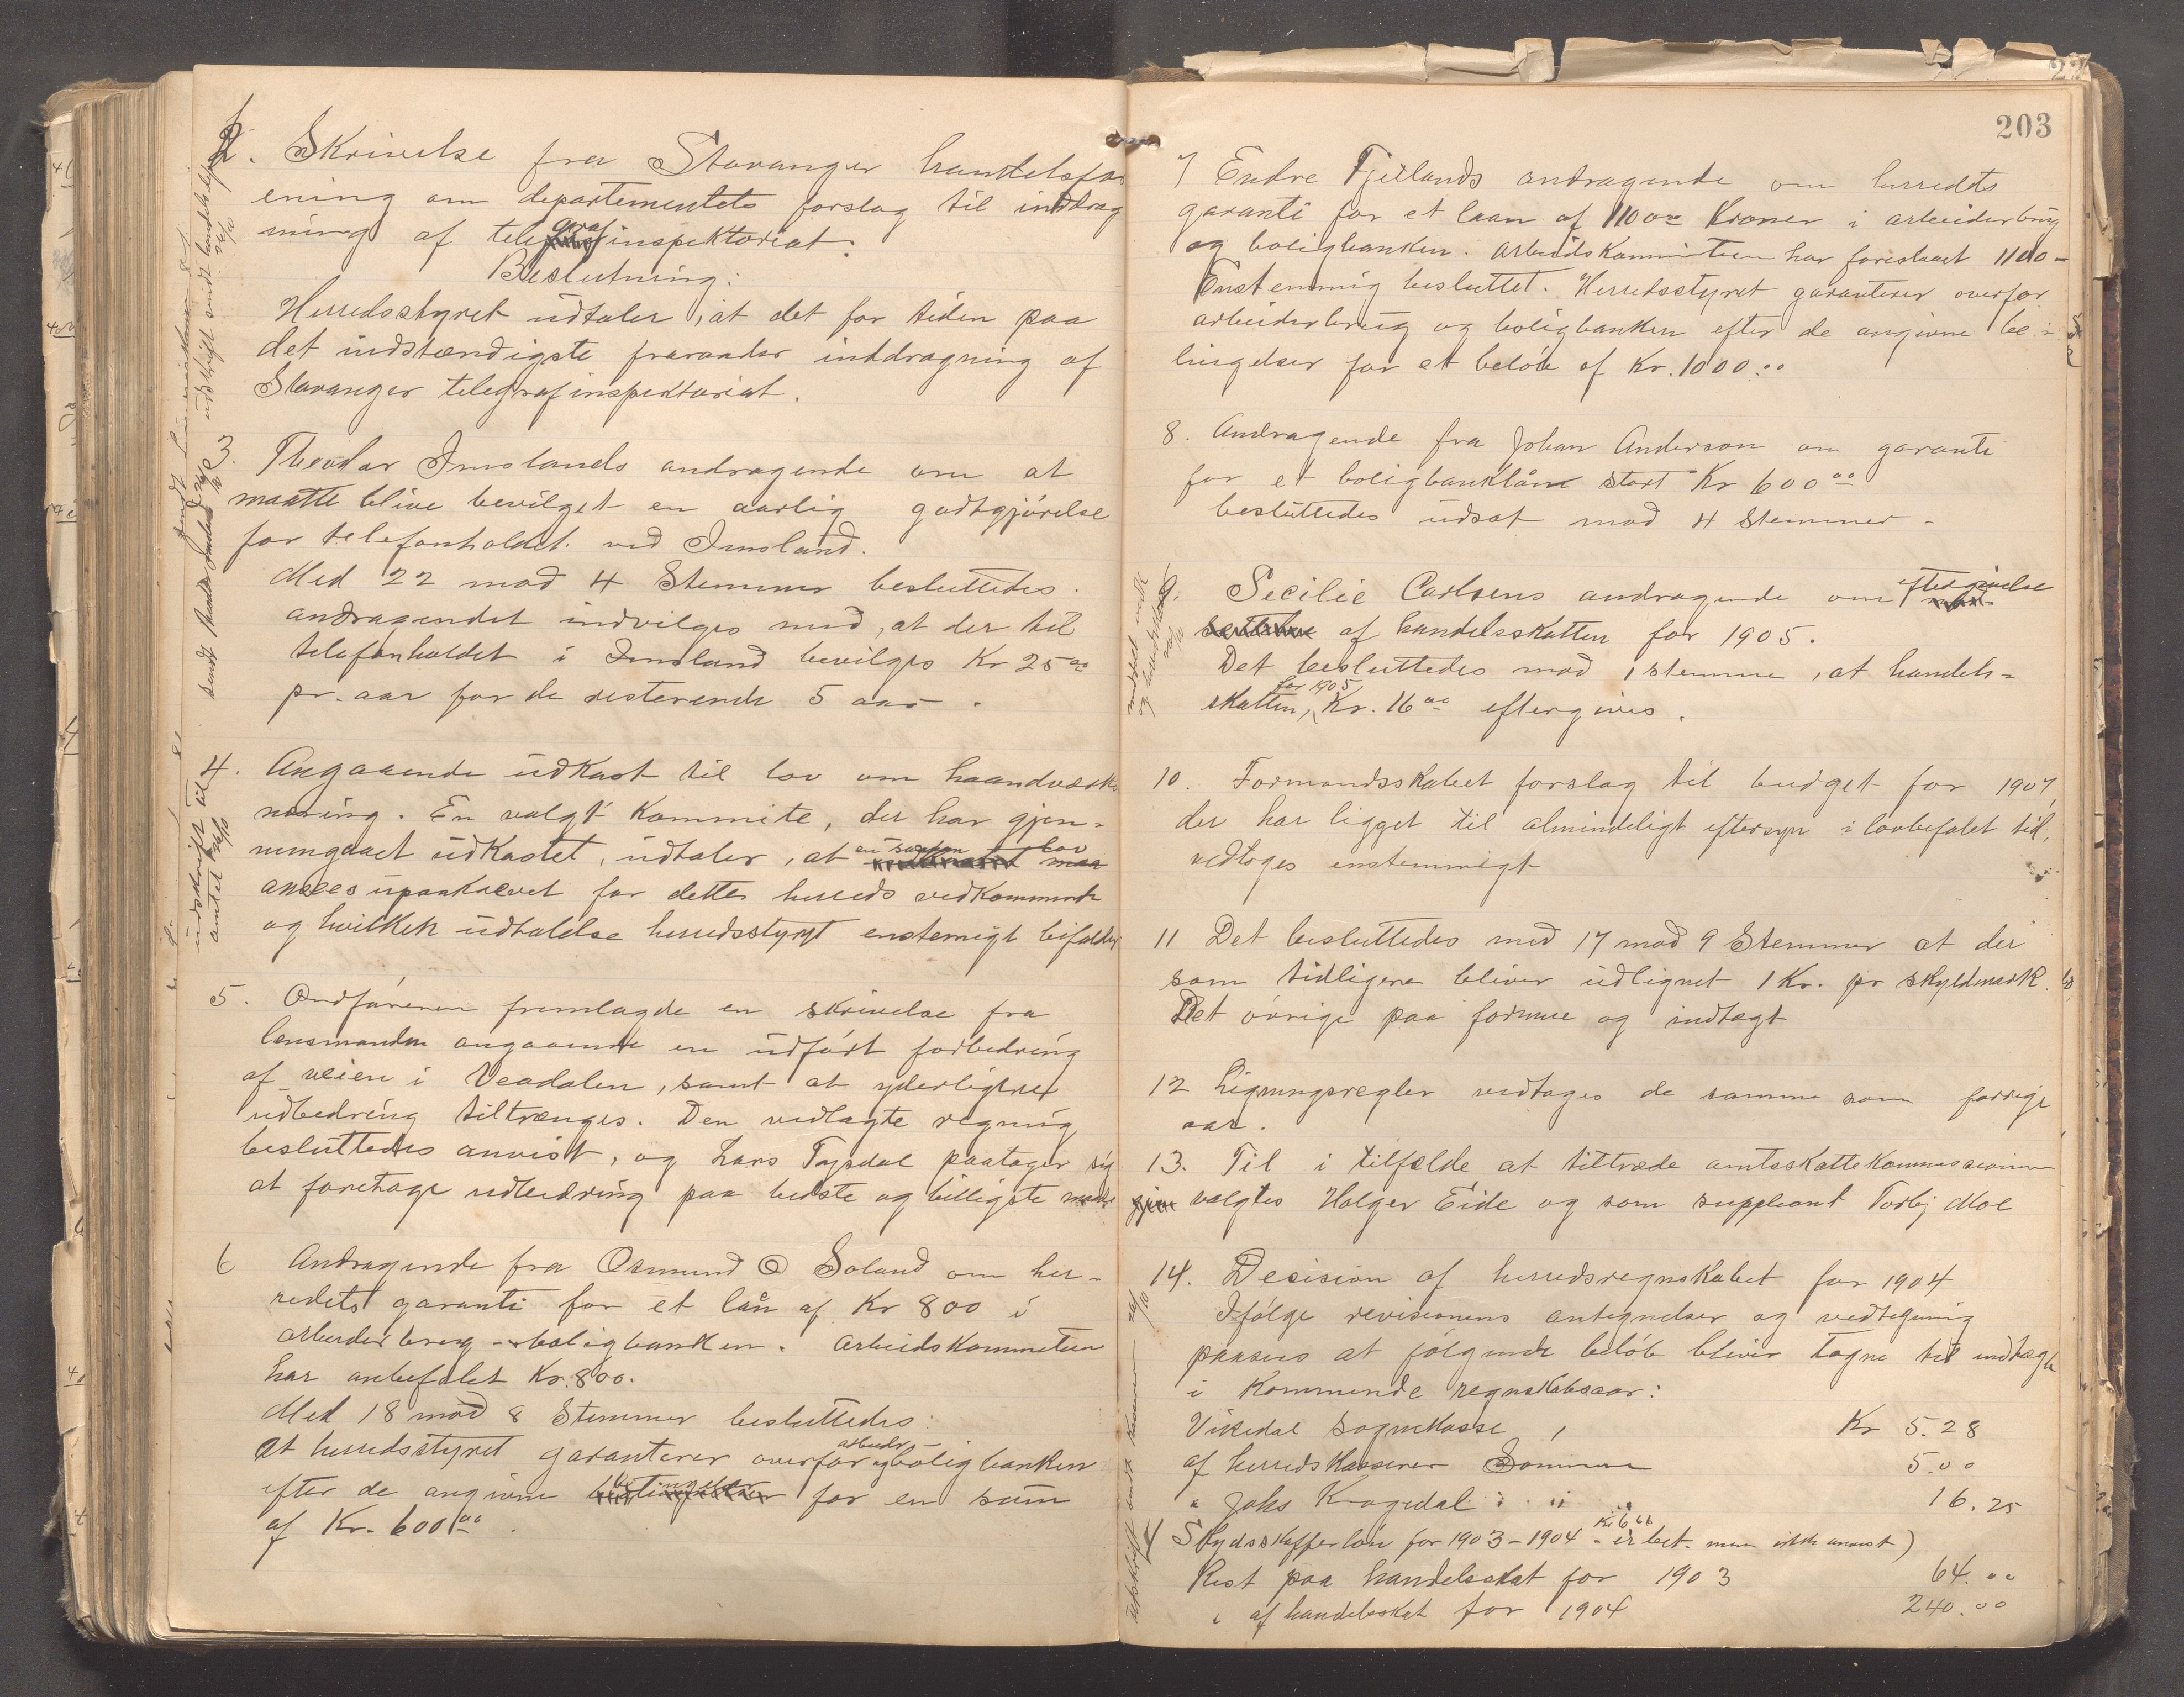 2. Skrivelse fra Stavanger handelsfor
ening om departementets forslag til inddrag
ning af telegrafinspektoriat.
Beslutning:
Herredsstyret udtaler, at det for tiden paa
det indstændigste fraraader inddragning af
Stavanger telegrafinspektoriat.
3. Theodor Imslands andragende om at
maatte blive bevilget en aarlig godtgjörelse
for telefonholdet ved Imsland.
Med 22 mod 4 Stemmer besluttedes
andragendet indvilges med, at der til
telefonholdet i Imsland bevilges Kr 25 00
pr. aar for de resterende 5 aar.
4. Angaaende udkast til lov om haandværks
næring. En valgt Kommite, der har gjen-
nemgaaet udkastet, udtaler, at en saadan lov
ansees upaakrævet for dette herreds vedkommende
og hvilken udtalelse herredsstyret enstemigt bifalder
5. Ordföreren fremlagde en skrivelse fra
lensmanden angaaende en udfört forbedring
af veien i Vaadalen, samt at yderligere
udbedring tiltrænges. Den vedlagte regning
besluttedes anvist, og Lars Tysdal paatager sig
at foretage udbedring paa bedste og billigste maade
6 Andragende fra Osmund O Søland om her-
redets garanti for et lån af Kr 800 i
arbeiderbrug - boligbanken. Arbeidskommiteen
har anbefalet Kr. 800.
Med 18 mod 8 Stemmer besluttedes:
At herredsstyret garanterer overfor arbeider- og boligbanken
efter de angivne betingelser for en sum
af Kr. 600 00.
203
7 Endre Fjellands andragende om herredets
garanti for et laan af 1100 00 Kroner i arbeiderbrug
og boligbanken. Arbeidskommiteen har foreslaaet 1100-
Enstemmig besluttet. Herredsstyret garanterer overfor
arbeiderbrug og boligbanken efter de angivne be-
tingelser for et belöb af Kr. 1000.00
8. Andragende fra Johan Anderson om garanti
for et boligbanklån stort Kr 600 00
besluttedes udsat mod 4 Stemmer-
9. Secilie Carlsens andragende om eftergivelse
af handelsskatten for 1905.
Det besluttedes mod 1 stemme, at handels-
skatten, for 1905 Kr. 16 00 eftergives.
10. Formandsskabet forslag til budget for 1907,
der har ligget til almindeligt eftersyn i lovbefalet tid,
vedtoges enstemmigt
11 Det besluttedes med 17 mod 9 Stemmer at der
som tidligere bliver udlignet 1 Kr. pr skyldmark.
Det övrige paa formue og indtægt
12 Ligningsregler vedtages de samme som forrige
aar.
13. Til i tilfælde at tiltræde amtsskattekommissionen
valgtes Holger Eide og som suppleant Torbj Moe
14. Decision af herredsregnskabet for 1904
Ifölge revisionens antegnelser og vedtegning
paasees at fölgende belöb bliver tagne til indtægt
i Kommende regnskabsaar:
Vikedal sognekasse, Kr 5.28
af herredskasserer Sömme 5.00
" Johs Kragedal " " 16.25
Skydsskafferlön for 1903-1904 - Kr 6 66 er bet. men ikke anvist)
Rest paa handelsskat for 1903 64.00
" af handelsskat for 1904 240.00